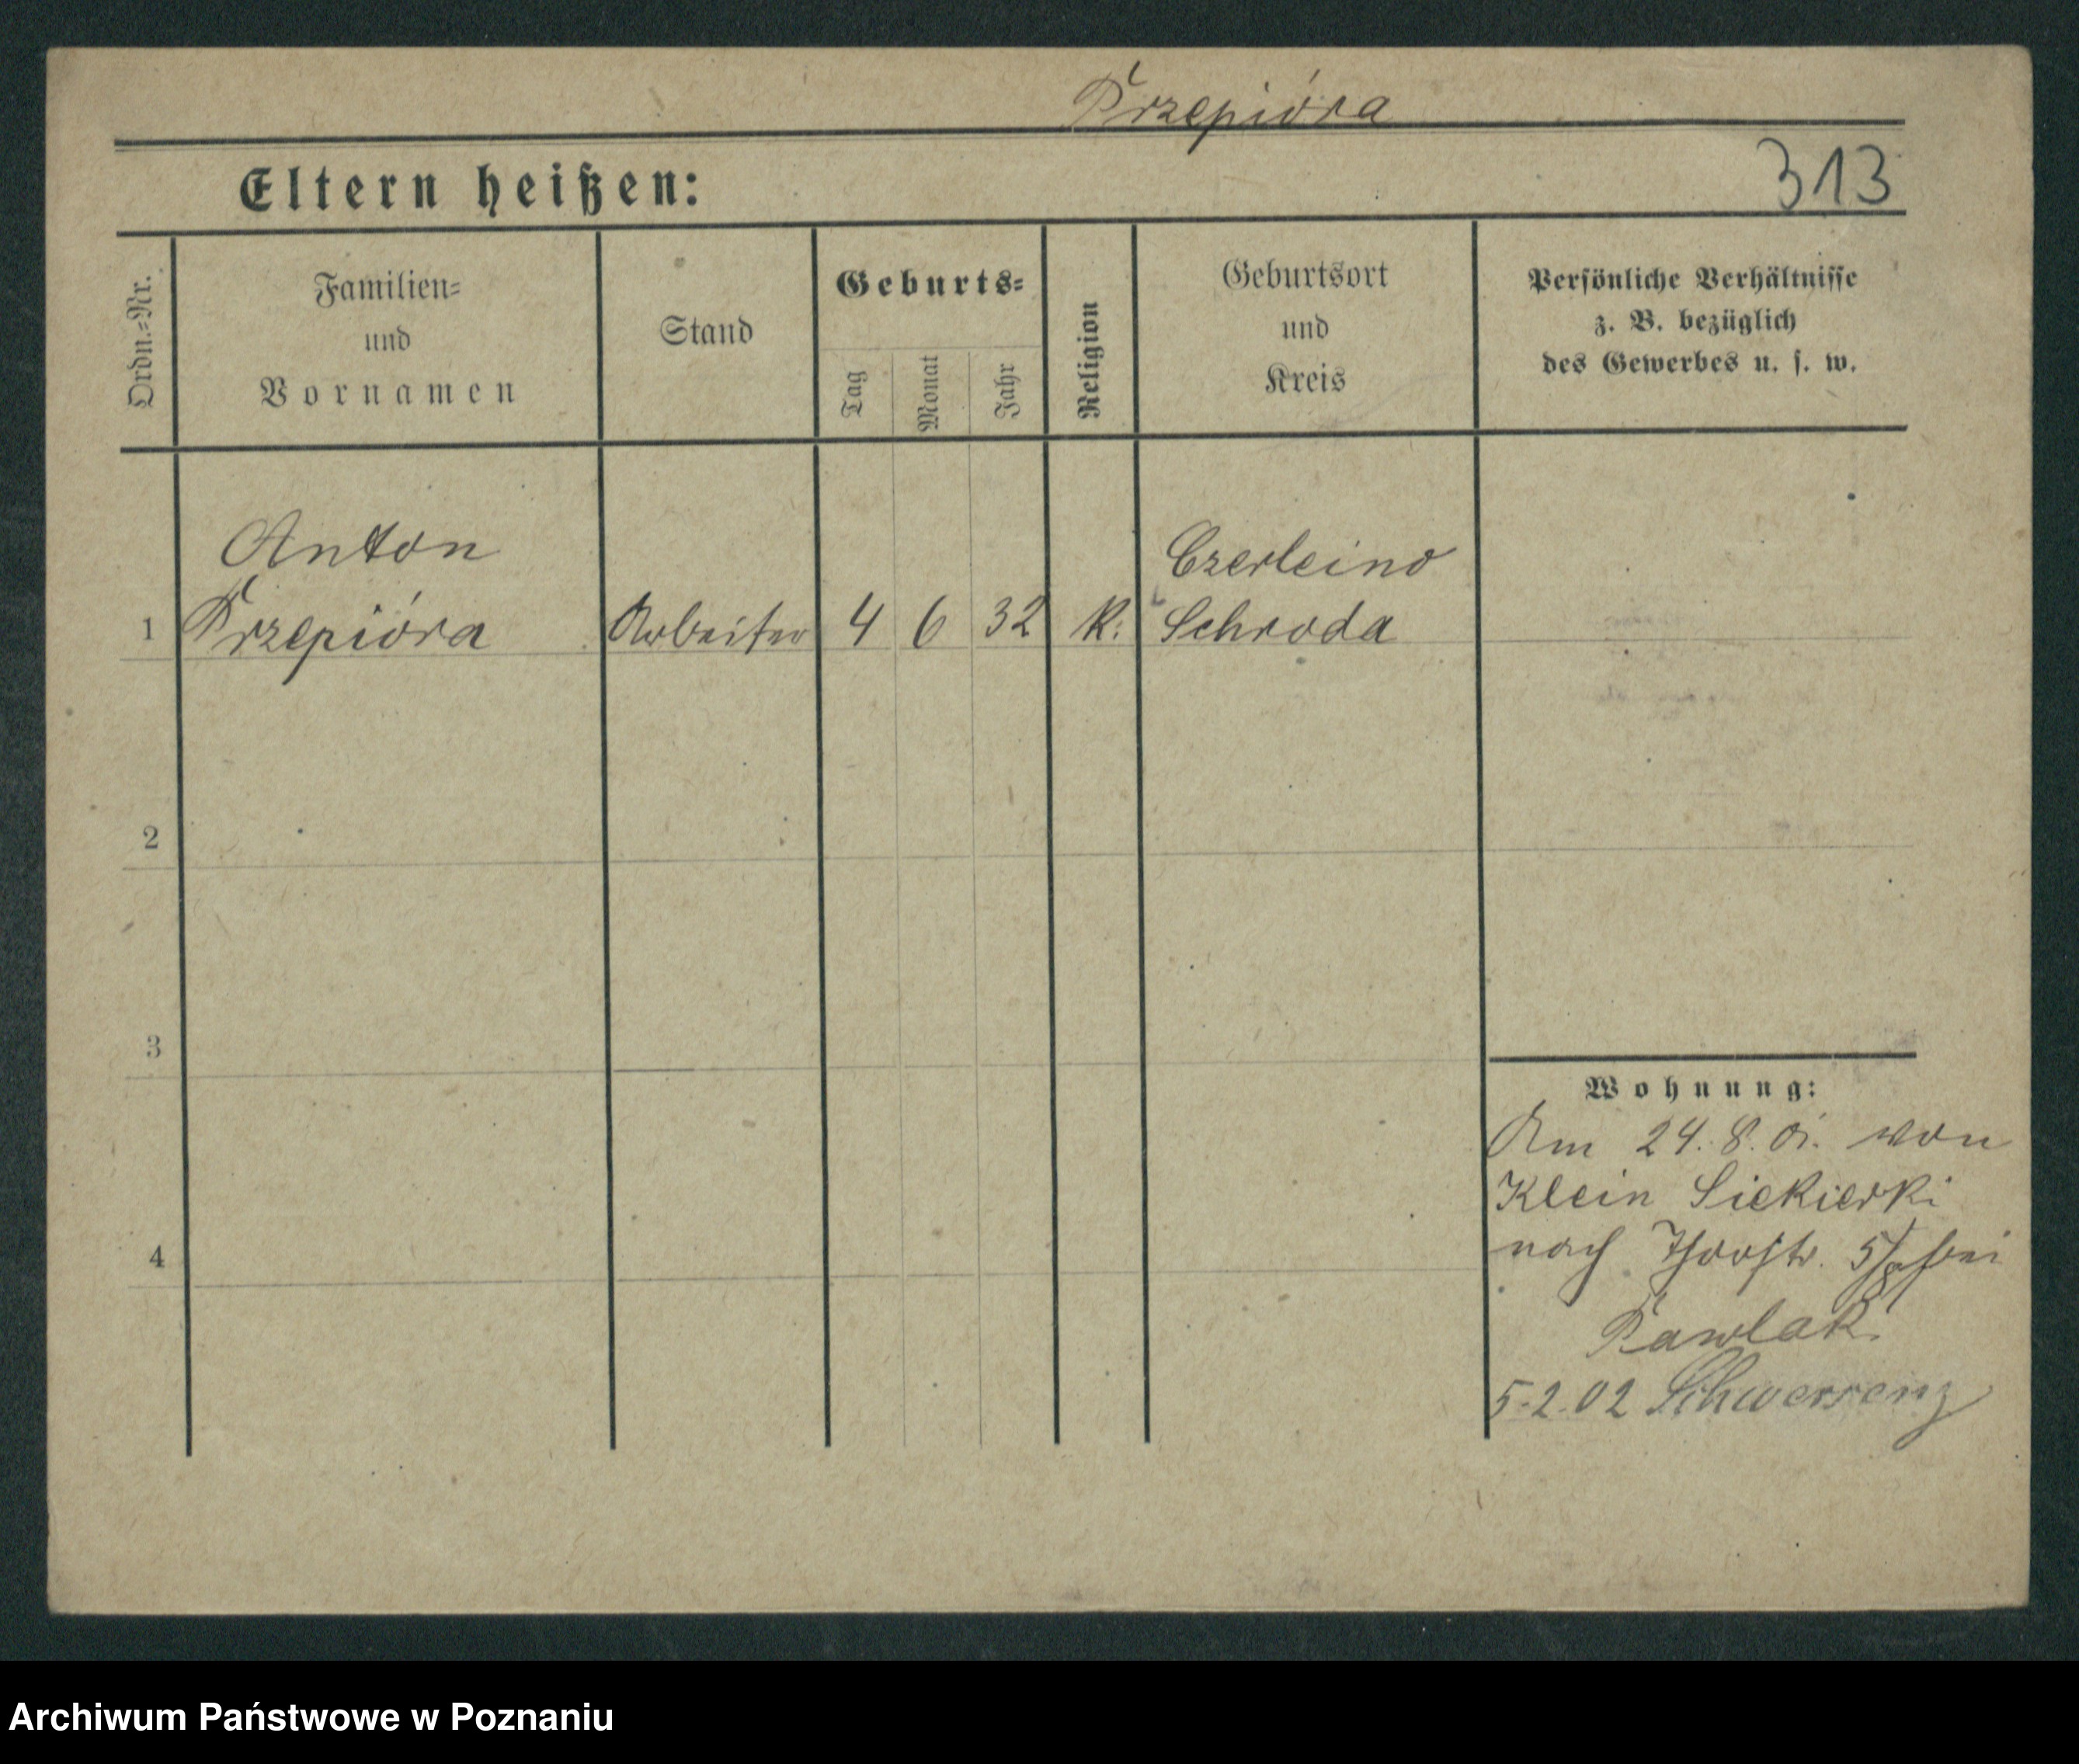 Przepióra
Eltern heißen:
313
Ordn.=Nr.
Familien=
und
Vornamen
Stand
Geburts=
Tag
Monat
Jahr
Religion
Geburtsort
und
Kreis
Persönliche Verhältnisse
z. B. bezüglich
des Gewerbes u. s. w.
Anton
Czerleino
1 Przepióra Arbeiter 4 6 32 K. Schroda
2
3
4
Wohnung:
Am 24.8.01. von
Klein Siekierki
nach Thorstr. bei
Pawlak.
5.2.02 Schwersenz
Archiwum Państwowe w Poznaniu